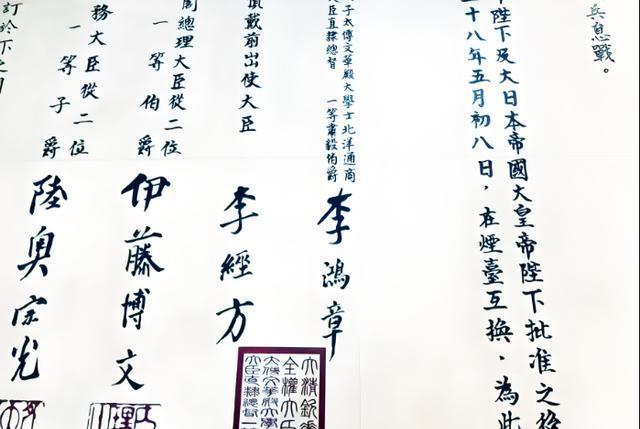 兵息戰。
陛下及大日本帝國大皇帝陛下批准之後
二十八年五月初八日，在煙臺互換，為此
子太傅文華殿大學士北洋通商
大臣直隸總督 一等肅毅伯爵
李鴻章
大清欽差
全權大臣
文華殿大學
大臣直隸總督一
頂戴前出使大臣
李經方
閣總理大臣從二位
一等伯爵
伊藤博文
務大臣從二位
一等子爵
陸奧宗光
訂於下之